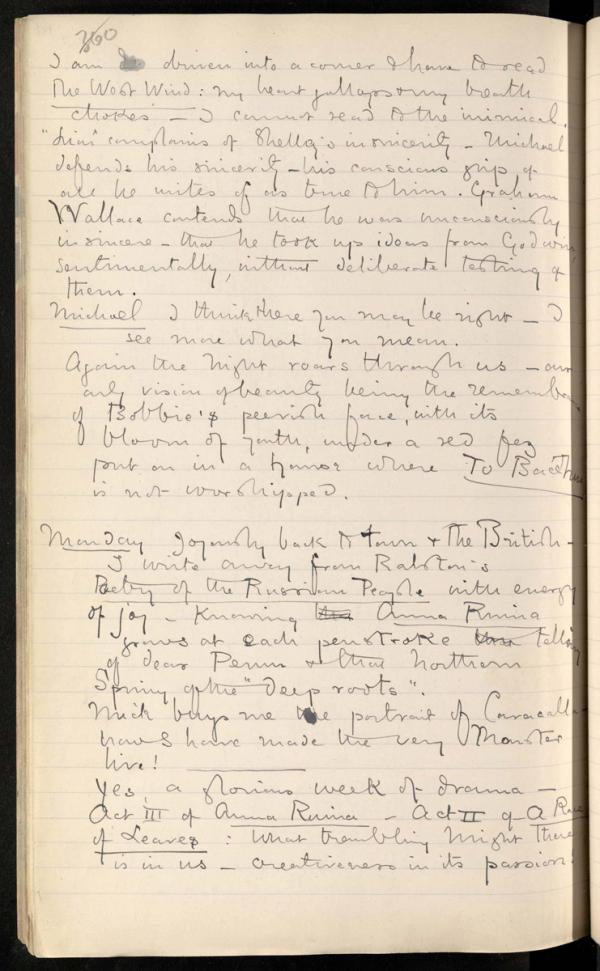 260
I am driven into a corner & have to read
the West Wind: my heart gallops & my breath
chokes — I cannot read to the inimical.
"Dian" complains of Shelley's insincerity — Michael
defends his sincerity — his conscious grip of
all he writes of as true to him. Graham
Wallace contends that he was unconsciously
insincere — that he took up ideas from Godwin,
sentimentally, without deliberate testing of
them.
Michael I think there you may be right — I
see more what you mean.
Again the Night roars through us — our
only vision of beauty being the remembrance
of Bobbie's peevish face, with its
bloom of youth, under a red fez
put on in a house where To
is not worshipped.
Monday Joyously back to town & the British —
I write away from Ralston's
Poetry of the Russian People with energy
of joy — knowing Anna Ruina
grows at each penstroke telling
of dear Perun & that Northern
Spring of the "deep roots".
Mick buys me the portrait of Caracalla —
now I have made the very Monster
live!
Yes, a glorious week of drama —
Act III of Anna Ruina — Act II of A Race
of Leaves: What trembling Might there
is in us — creativeness in its passion!